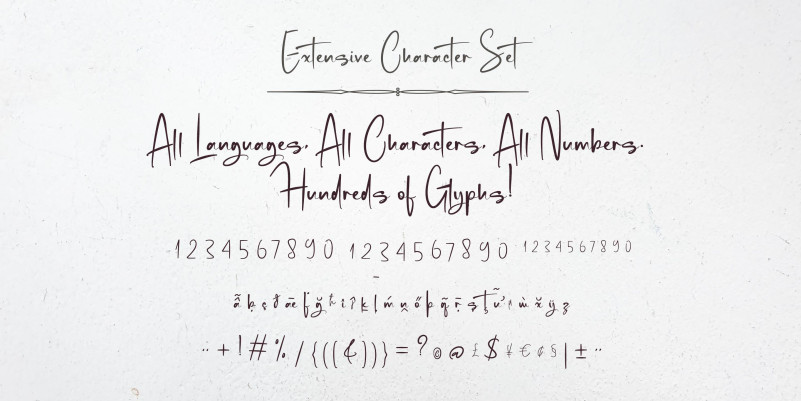 Extensive Character Set
All Languages. All Characters. All Numbers.
Hundreds of Glyphs!
1234567890 1234567890 1234567890
+ ! # % / { ( ( & ) ) } = ? © @ £ $ ¥ € ¢ § | ±